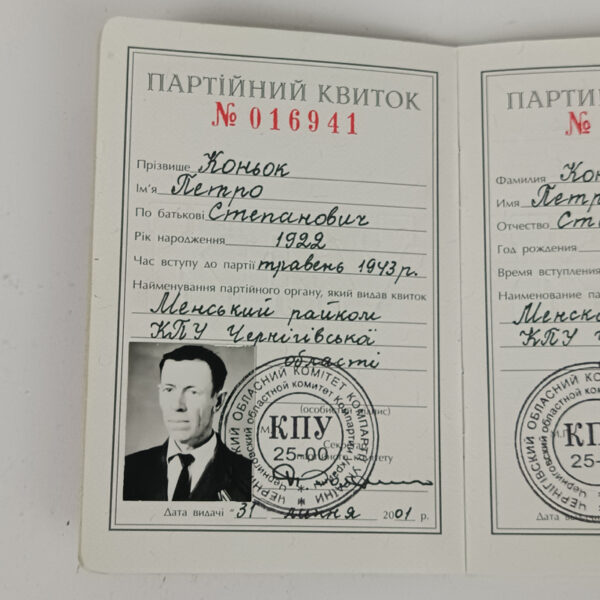 ПАРТІЙНИЙ КВИТОК
№ 016941
Прізвище Коньок
Ім'я Петро
По батькові Степанович
Рік народження 1922
Час вступу до партії травень 1943 р.
Найменування партійного органу, який видав квиток
Менський райком
КПУ Чернігівської
області
(особистий підпис)
М.
Секретар
комітету
ЧЕРНІГІВСЬКИЙ ОБЛАСНИЙ КОМІТЕТ КОМПАРТІЇ УКРАЇНИ
Черниговский областной комитет Компартии Украины
КПУ
25-00
Дата видачі "31 липня 2001 р.
ПАРТИ
№
Фамилия Кон
Имя Петр
Отчество Ст
Год рождения
Время вступления
Наименование па
Менск
КПУ Ч
М.П.
ЧЕРНІГІВСЬКИЙ ОБЛАСН
Черниговский областной
КП
25-
Дата вы